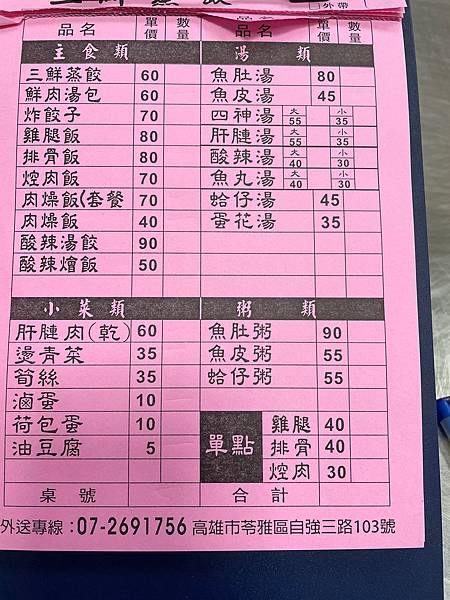 外帶
品名 單價 數量 品名 單價 數量
主食類 湯類
三鮮蒸餃 60 魚肚湯 80
鮮肉湯包 60 魚皮湯 45
炸餃子 70 四神湯 大55 小35
雞腿飯 80 肝腱湯 大55 小35
排骨飯 80 酸辣湯 大40 小30
焢肉飯 70 魚丸湯 大40 小30
肉燥飯(套餐 70 蛤仔湯 45
肉燥飯 40 蛋花湯 35
酸辣湯餃 90
酸辣燴飯 50
小菜類 粥類
肝腱肉(乾) 60 魚肚粥 90
燙青菜 35 魚皮粥 55
筍絲 35 蛤仔粥 55
滷蛋 10
荷包蛋 10 單點 雞腿 40
油豆腐 5 排骨 40
焢肉 30
桌號 合計
外送專線:07-2691756 高雄市苓雅區自強三路103號